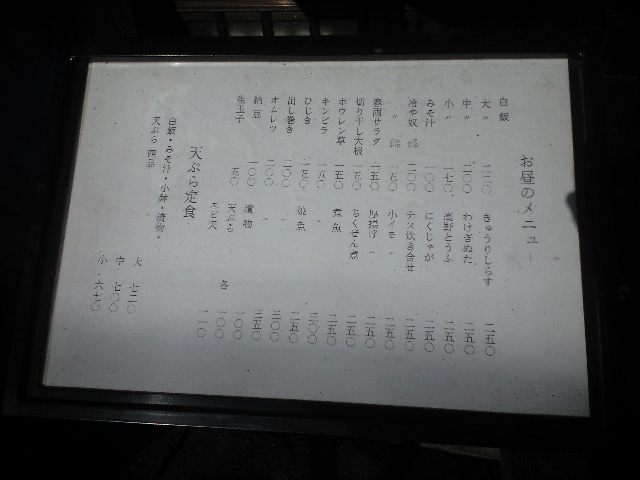 お昼のメニュー
白飯
大〃 二二〇 きゅうりしらす 二五〇
中〃 二〇〇 わけぎぬた 二五〇
小〃 一七〇 高野とうふ 二五〇
みそ汁 一〇〇 にくじゃが 二五〇
冷や奴 二〇〇 ナス炊き合せ 二五〇
〃 一五〇 小イモ〃 二五〇
春雨サラダ 一五〇 厚揚げ〃 二五〇
切り干し大根 一五〇 ちくぜん煮 二五〇
ホウレン草 一五〇 煮魚 二五〇
キンピラ 一五〇 〃 三〇〇
ひじき 一五〇 焼魚 二五〇
出し巻き 二〇〇 〃 三〇〇
オムレツ 二〇〇 〃 三五〇
納豆 一〇〇 漬物 一〇〇
生玉子 五〇 天ぷら 各 一〇〇
エビ天 一一〇
天ぷら定食
白飯・みそ汁・小鉢・漬物・
天ぷら四品
大 七二〇
中 七〇〇
小 六七〇